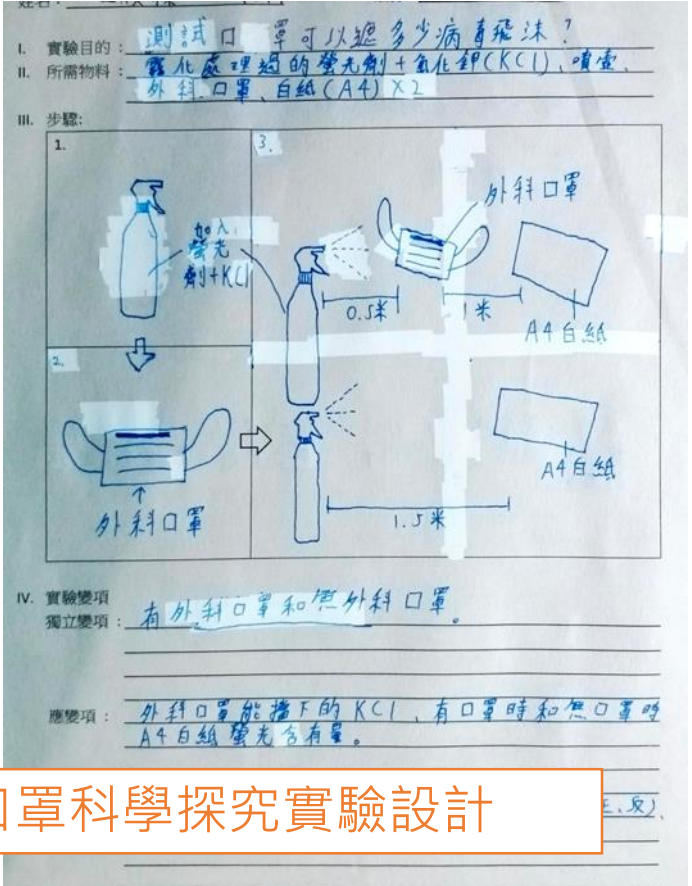 姓名:
I. 實驗目的: 測試口罩可以濾多少病毒飛沫?
II. 所需物料: 霧化處理過的螢光劑+氯化鉀(KCl)、噴壺、
外科口罩、白紙(A4)X2
III. 步驟:
1.
加入
螢光
劑+KCl
2.
外科口罩
3.
外科口罩
0.5米
1米
A4白紙
A4白紙
1.5米
IV. 實驗變項
獨立變項: 有外科口罩和無外科口罩。
應變項: 外科口罩能擋下的KCl、有口罩時和無口罩時
A4白紙螢光含有量。
口罩科學探究實驗設計
反)、